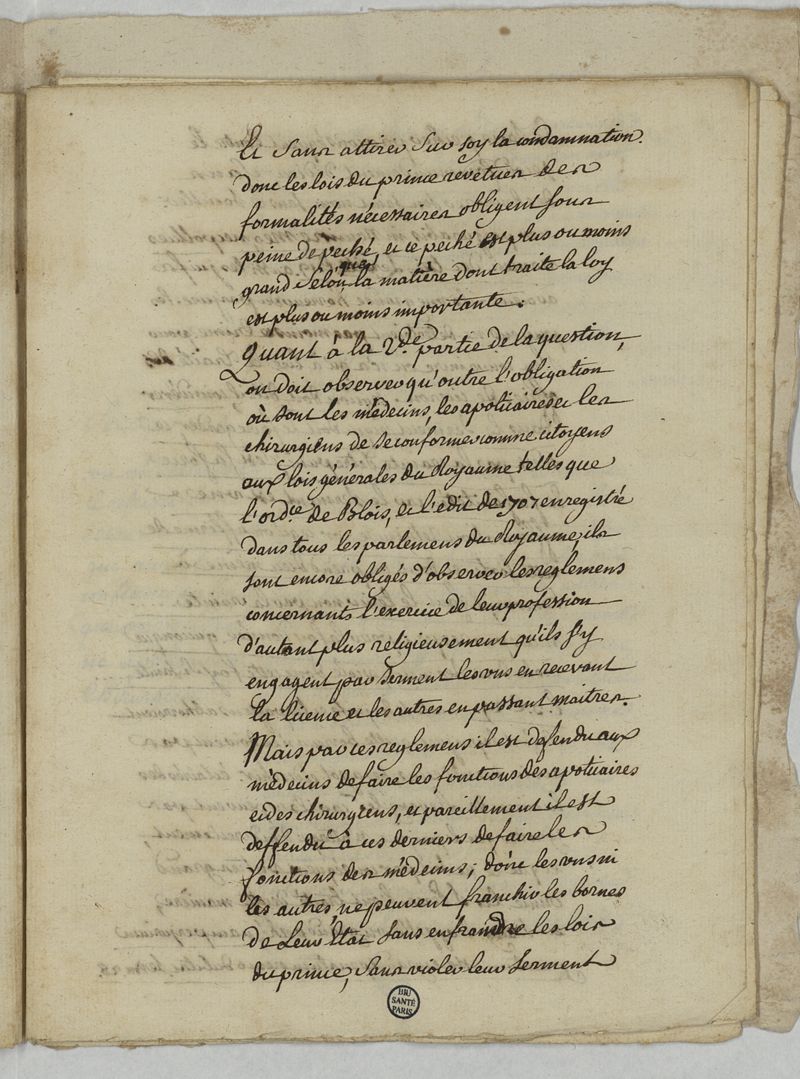 Et sans attirer sur soy la condamnation.
donc les lois du prince revetues des
formalités nécessaires obligent sous
peine de peché, et ce peché est plus ou moins
grand selon que la matière dont traite la loy
est plus ou moins importante.
Quant à la 2de partie de la question,
on doit observer qu'outre l'obligation
où sont les médecins, les apoticaires et les
chirurgiens de se conformer comme citoyens
aux lois générales du Royaume telles que
l'ordce de Blois, et l'edit de 1707 enregistré
dans tous les parlemens du Royaume, ils
sont encore obligés d'observer les reglemens
concernants l'exercice de leur profession
d'autant plus religieusement qu'ils s'y
engagent par serment les uns en recevant
la licence et les autres en passant maitres.
Mais par ces reglemens il est defendu aux
médecins de faire les fonctions des apoticaires
et des chirurgiens, et pareillement il est
deffendu à ces derniers de faire les
fonctions des médecins; donc les uns ni
les autres ne peuvent franchir les bornes
de leur Etat sans enfraindre les lois
du prince, sans violer leur serment
BIU
SANTÉ
PARIS